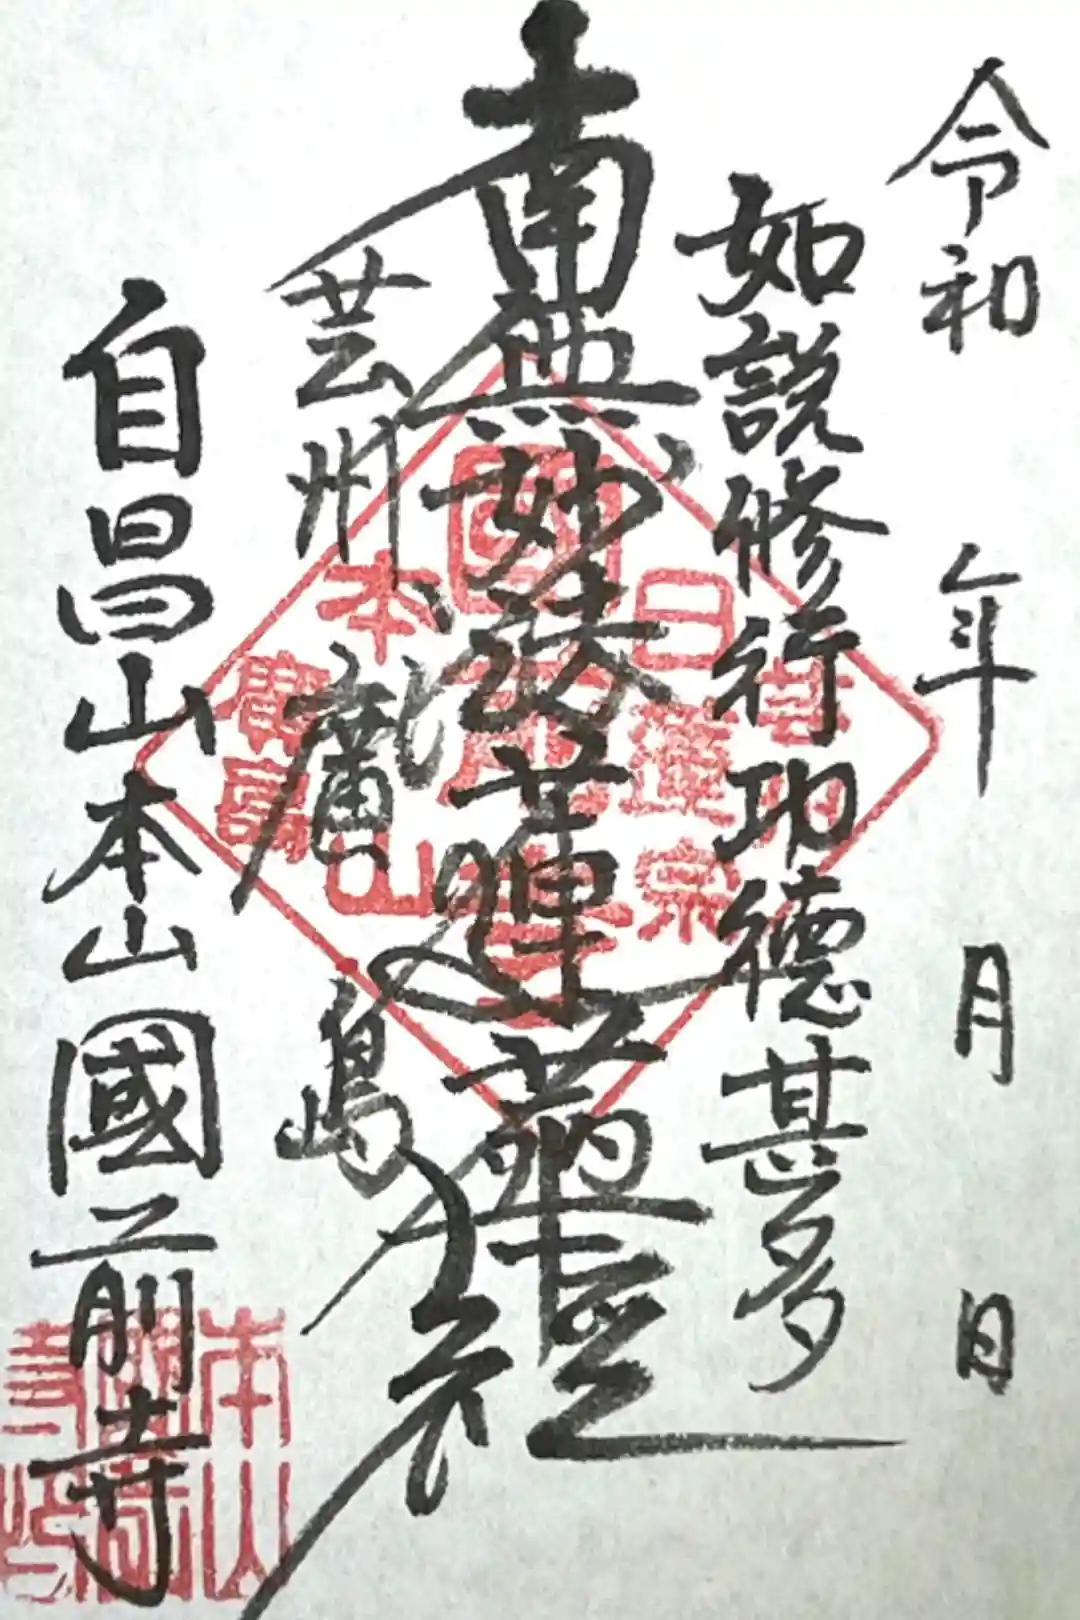 令和 年 月 日
如説修行功徳甚多
南無妙法蓮華經
芸州廣島
自昌山本山國前寺
日蓮宗
本山
本山